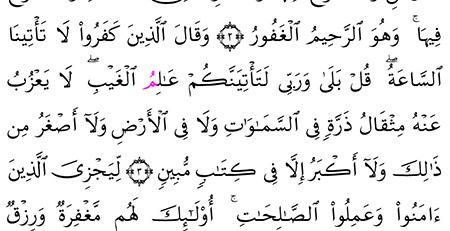 فِيهَا ۚ وَهُوَ ٱلرَّحِيمُ ٱلْغَفُورُ ﴿٢﴾ وَقَالَ ٱلَّذِينَ كَفَرُوا۟ لَا تَأْتِينَا
ٱلسَّاعَةُ ۖ قُلْ بَلَىٰ وَرَبِّى لَتَأْتِيَنَّكُمْ عَـٰلِمُ ٱلْغَيْبِ ۖ لَا يَعْزُبُ
عَنْهُ مِثْقَالُ ذَرَّةٍۢ فِى ٱلسَّمَـٰوَٰتِ وَلَا فِى ٱلْأَرْضِ وَلَآ أَصْغَرُ مِن
ذَٰلِكَ وَلَآ أَكْبَرُ إِلَّا فِى كِتَـٰبٍۢ مُّبِينٍۢ ﴿٣﴾ لِّيَجْزِىَ ٱلَّذِينَ
ءَامَنُوا۟ وَعَمِلُوا۟ ٱلصَّـٰلِحَـٰتِ ۚ أُو۟لَـٰٓئِكَ لَهُم مَّغْفِرَةٌۭ وَرِزْقٌۭ